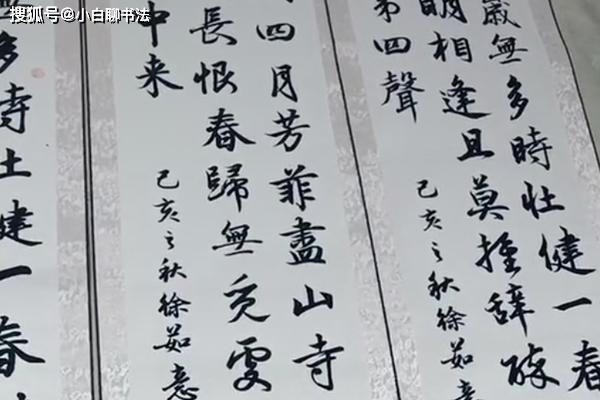 搜狐号@小白聊书法
歲無多時壯健一春
明相逢且莫推辭醉
第四聲
己亥之秋徐茹意
四月芳菲盡山寺
長恨春歸無覓處
中来
己亥之秋徐茹意
多時壯健一春